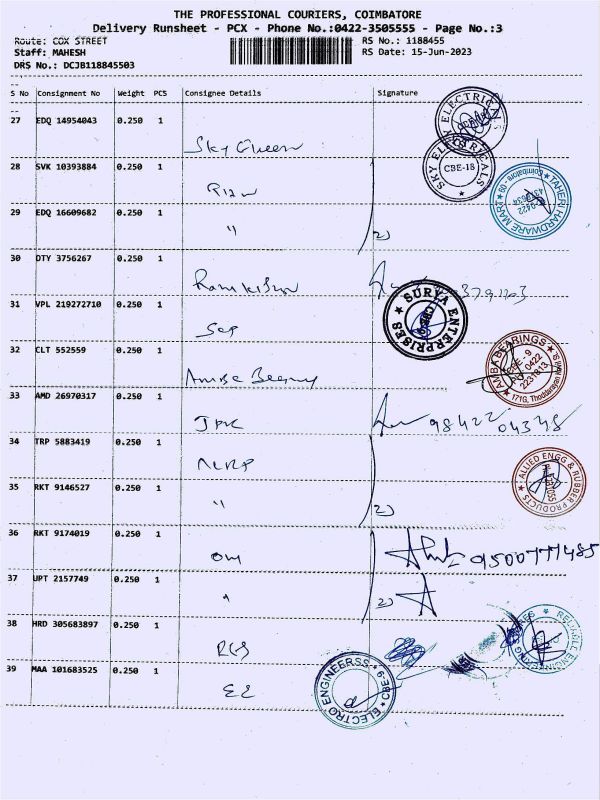 THE PROFESSIONAL COURIERS, COIMBATORE
Delivery Runsheet - PCX - Phone No.:0422-3505555 - Page No.:3
Route: COX STREET
RS No.: 1188455
Staff: MAHESH
RS Date: 15-Jun-2023
DRS No.: DCJB118845503
S No Consignment No Weight PCS Consignee Details Signature
27 EDQ 14954043 0.250 1
SKY ELECTRICALS
28 SVK 10393884 0.250 1
SKY ELECTRICALS CBE-18
TAHERI HARDWARE MART Coimbatore
29 EDQ 16609682 0.250 1 " 2)
30 DTY 3756267 0.250 1
31 VPL 219272710 0.250 1
SURYA ENTERPRISES
32 CLT 552559 0.250 1
AMBA BEARINGS CBE - 9 0422 2231813
33 AMD 26970317 0.250 1 98422 04348
34 TRP 5883419 0.250 1
ALLIED ENGG & RUBBER PRODUCTS
35 RKT 9146527 0.250 1 " 2)
36 RKT 9174019 0.250 1 Om 9500777485
37 UPT 2157749 0.250 1 " 2)
38 HRD 305683897 0.250 1
RELIABLE ENGINEERING
39 MAA 101683525 0.250 1 EE
ELECTRO ENGINEERSS CBE-9